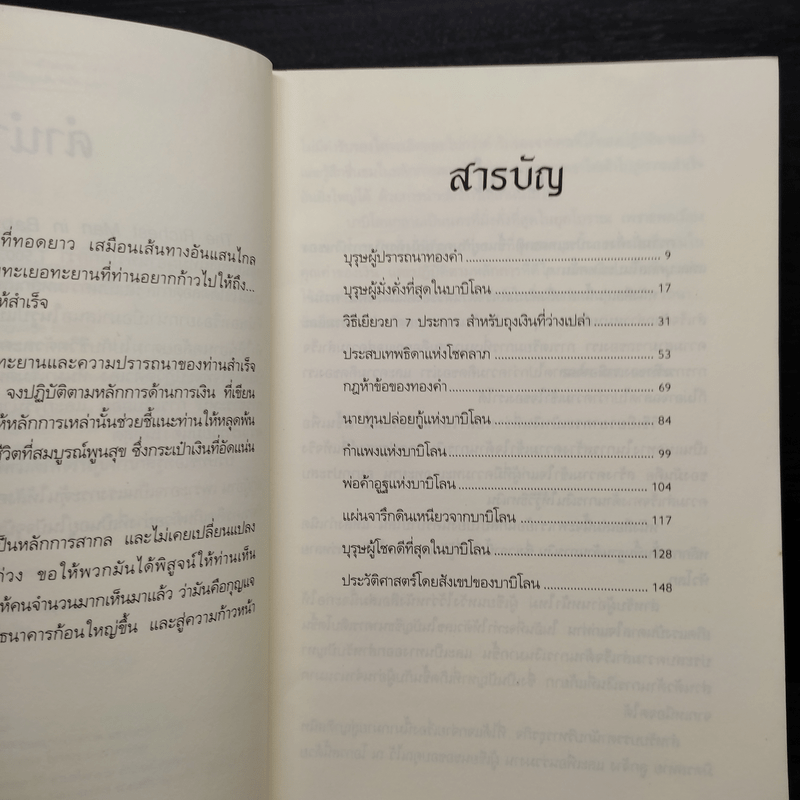 ที่ทอดยาว เสมือนเส้นทางอันแสนไกล
ทะเยอทะยานที่ท่านอยากก้าวไปให้ถึง...
ห้สำเร็จ
ทะยานและความปรารถนาของท่านสำเร็จ
จงปฏิบัติตามหลักการด้านการเงิน ที่เขียน
ห้หลักการเหล่านั้นช่วยชี้แนะท่านให้หลุดพ้น
ชีวิตที่สมบูรณ์พูนสุข ซึ่งกระเป๋าเงินที่อัดแน่น
ป็นหลักการสากล และไม่เคยเปลี่ยนแปลง
ขอให้พวกมันได้พิสูจน์ให้ท่านเห็น
ห้คนจำนวนมากเห็นมาแล้ว ว่ามันคือกุญแจ
ธนาคารก้อนใหญ่ขึ้น และสู่ความก้าวหน้า
สารบัญ
บุรุษผู้ปรารถนาทองคำ 9
บุรุษผู้มั่งคั่งที่สุดในบาบิโลน 17
วิธีเยียวยา 7 ประการ สำหรับถุงเงินที่ว่างเปล่า 31
ประสบเทพธิดาแห่งโชคลาภ 53
กฎห้าข้อของทองคำ 69
นายทุนปล่อยกู้แห่งบาบิโลน 84
กำแพงแห่งบาบิโลน 99
พ่อค้าอูฐแห่งบาบิโลน 104
แผ่นจารึกดินเหนียวจากบาบิโลน 117
บุรุษผู้โชคดีที่สุดในบาบิโลน 128
ประวัติศาสตร์โดยสังเขปของบาบิโลน 148